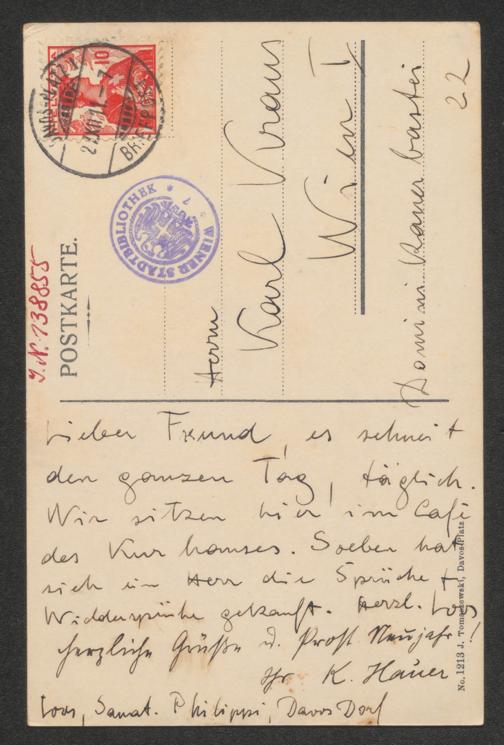 POSTKARTE.
J.N. 138855
10
BRIEFPOST
WIENER STADTBIBLIOTHEK
Herrn
Karl Kraus
Wien I
Dominikanerbastei
22
Lieber Freund, es schneit
den ganzen Tag, täglich.
Wir sitzen hier im Café
des Kurhauses. Soeben hat
sich ein Herr die Sprüche +
Widersprüche gekauft. Herzl. Loos
herzliche Grüße u. Prost Neujahr!
Ihr K. Hauer
Loos, Sanat. Philippi, Davos Dorf
No. 1213 J. Tomaschewski, Davos-Platz